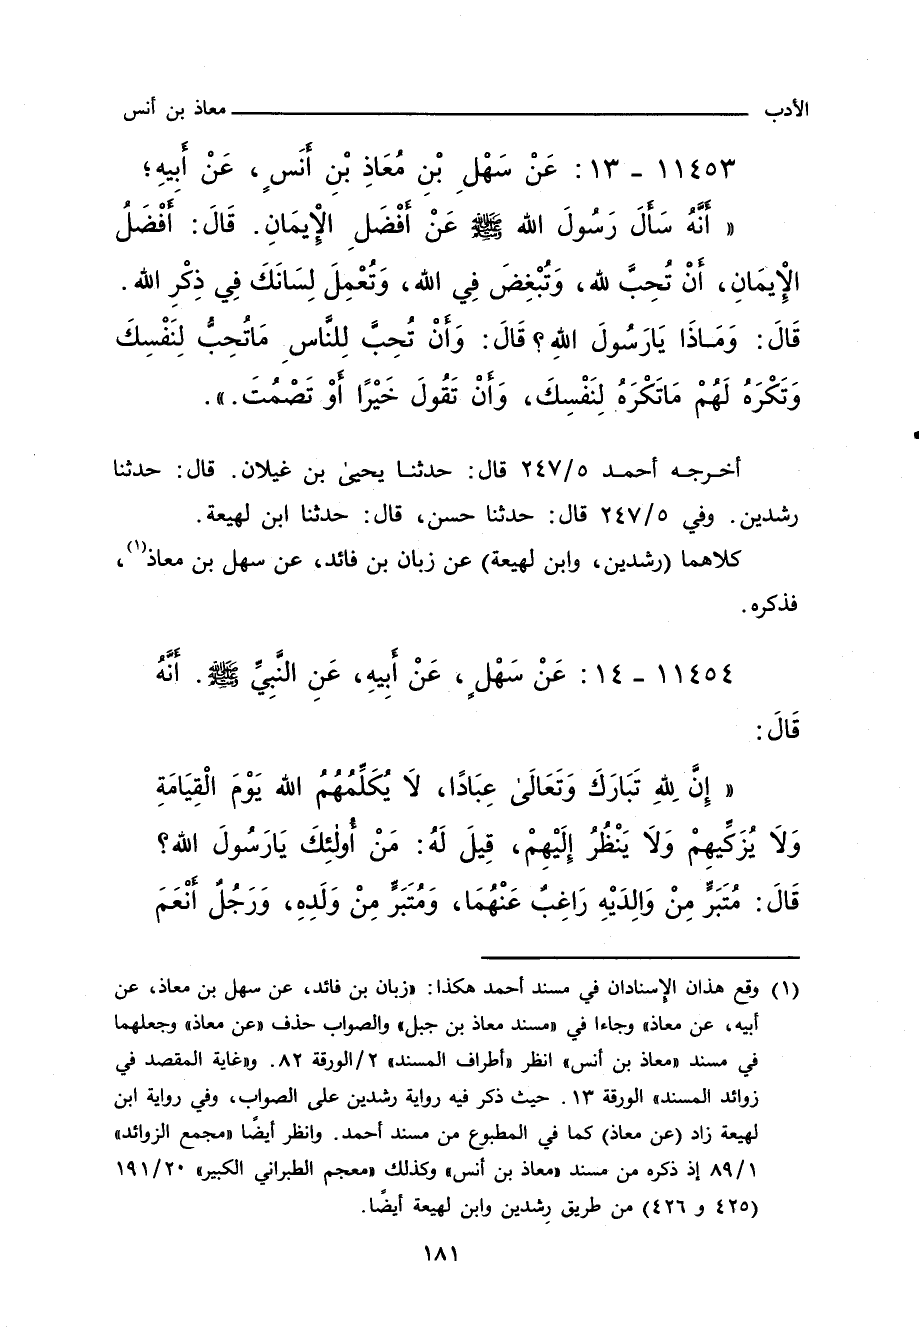 الأدب ــــــــــــــــــــ معاذ بن أنس
١١٤٥٣ - ١٣ : عَنْ سَهْلِ بْنِ مُعَاذِ بْنِ أَنَسٍ ، عَنْ أَبِيهِ؛
« أَنَّهُ سَأَلَ رَسُولَ الله ﷺ عَنْ أَفْضَلِ الْإِيمَانِ. قَالَ: أَفْضَلُ
الإِيمَانِ، أَنْ تُحِبَّ لله، وَتُبْغِضَ فِي الله، وَتُعْمِلَ لِسَانَكَ فِي ذِكْرِ الله .
قَالَ: وَمَاذَا يَارَسُولَ اللهِ؟ قَالَ: وَأَنْ تُحِبَّ لِلنَّاسِ مَاتُحِبُّ لِنَفْسِكَ
وَتَكْرَهُ لَهُمْ مَاتَكْرَهُ لِنَفْسِكَ، وَأَنْ تَقُولَ خَيْرًا أَوْ تَصْمُتَ.».
أخرجه أحمد ٢٤٧/٥ قال: حدثنا يحيىٰ بن غيلان. قال: حدثنا
رشدين. وفي ٢٤٧/٥ قال: حدثنا حسن، قال: حدثنا ابن لهيعة.
كلاهما (رشدين، وابن لهيعة) عن زبان بن فائد، عن سهل بن معاذ(١)،
فذكره.
١١٤٥٤ - ١٤ : عَنْ سَهْلٍ ، عَنْ أَبِيهِ، عَنِ النَّبِيِّ ﷺ. أَنَّهُ
قَالَ:
« إِنَّ لِلهِ تَبَارَكَ وَتَعَالَىٰ عِبَادًا، لَا يُكَلِّمُهُمُ الله يَوْمَ الْقِيَامَةِ
وَلَا يُزَكِّيهِمْ وَلَا يَنْظُرُ إِلَيْهِمْ، قِيلَ لَهُ: مَنْ أُولٰئِكَ يَارَسُولَ الله؟
قَالَ: مُتَبَرٍّ مِنْ وَالِدَيْهِ رَاغِبٌ عَنْهُمَا، وَمُتَبَرٍّ مِنْ وَلَدِهِ، وَرَجُلٌ أَنْعَمَ
(١) وقع هذان الإسنادان في مسند أحمد هكذا: «زبان بن فائد، عن سهل بن معاذ، عن
أبيه، عن معاذ» وجاءا في «مسند معاذ بن جبل» والصواب حذف «عن معاذ» وجعلهما
في مسند «معاذ بن أنس» انظر «أطراف المسند» ٢/الورقة ٨٢. و«غاية المقصد في
زوائد المسند» الورقة ١٣. حيث ذكر فيه رواية رشدين على الصواب، وفي رواية ابن
لهيعة زاد (عن معاذ) كما في المطبوع من مسند أحمد. وانظر أيضًا «مجمع الزوائد»
٨٩/١ إذ ذكره من مسند «معاذ بن أنس» وكذلك «معجم الطبراني الكبير» ١٩١/٢٠
(٤٢٥ و ٤٢٦) من طريق رشدين وابن لهيعة أيضًا.
١٨١